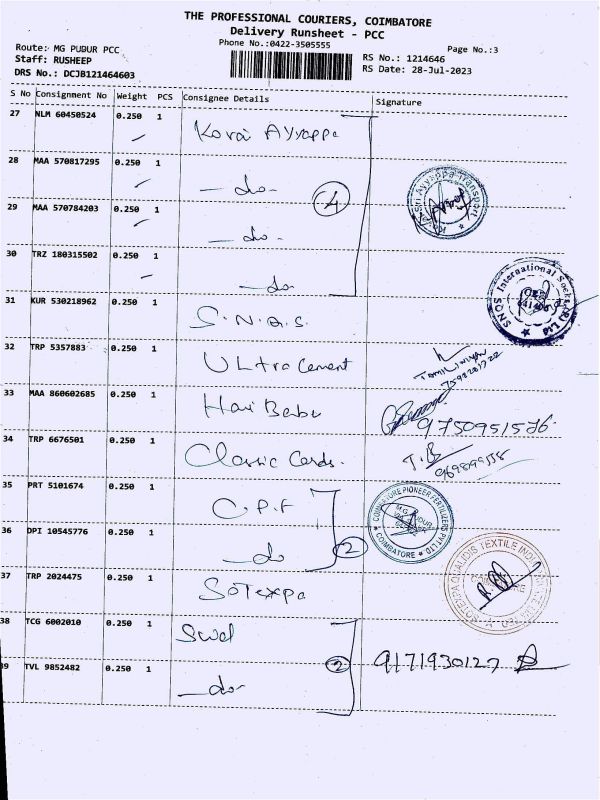 THE PROFESSIONAL COURIERS, COIMBATORE
Delivery Runsheet - PCC
Phone No.:0422-3505555
Page No.:3
Route: MG PUDUR PCC
Staff: RUSHEEP
DRS No.: DCJB121464603
RS No.: 1214646
RS Date: 28-Jul-2023
S No Consignment No Weight PCS Consignee Details Signature
27 NLM 60450524 0.250 1 Kovai Ayyappa
28 MAA 570817295 0.250 1 -do-
4
Sri Ayyappa Transport
29 MAA 570784203 0.250 1 -do-
30 TRZ 180315502 0.250 1 -do-
SNQS International Socks (P) Ltd
31 KUR 530218962 0.250 1 S.N.Q.S.
32 TRP 5357883 0.250 1 Ultra Cement
33 MAA 860602685 0.250 1 Hari Babu 9750951576
34 TRP 6676501 0.250 1 Classic Cards.
35 PRT 5101674 0.250 1 C.P.F
2
COIMBATORE PIONEER FERTILIZERS PVT LTD
M.G. PUDUR
COIMBATORE
36 DPI 10545776 0.250 1 -do
37 TRP 2024475 0.250 1 SoTexpa
SOTEXPA QUALIDIS TEXTILE
COIMBATORE
38 TCG 6002010 0.250 1 Swel
2
9171930127
39 TVL 9852482 0.250 1 -do-